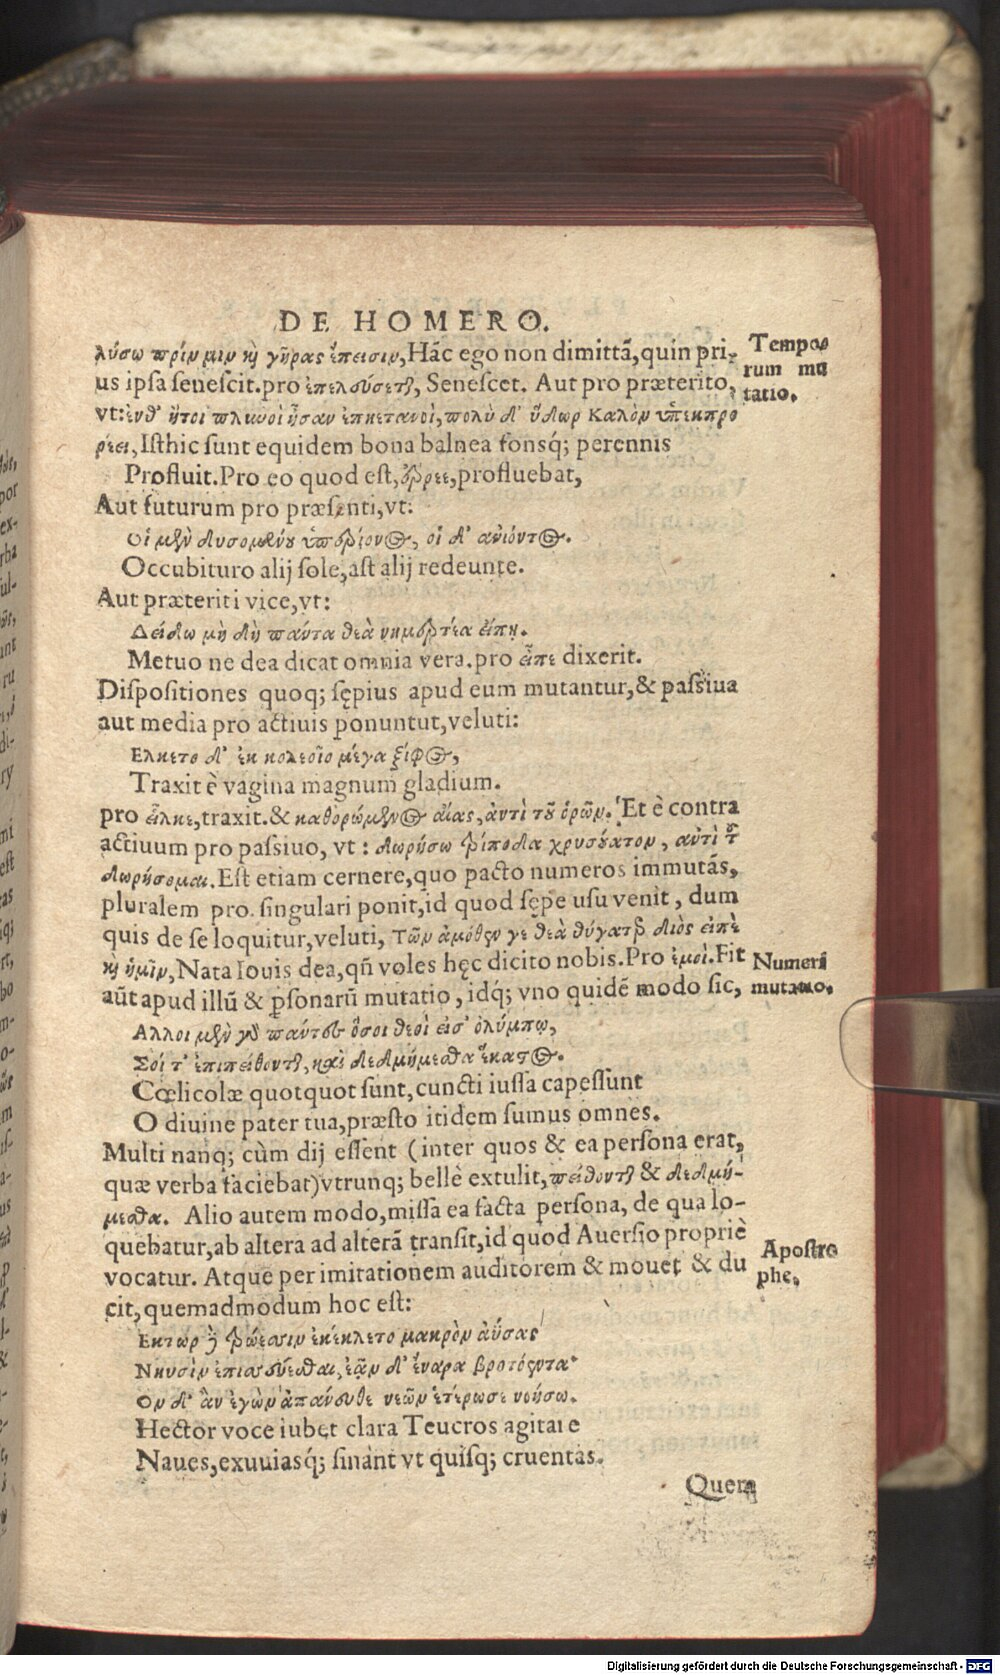 DE HOMERO.
λύσω πρίν μιν καὶ γῆρας ἔπεισιν, Hãc ego non dimittã, quin pri-
us ipsa senescit. pro ἐπελεύσεται, Senescet. Aut pro præterito,
vt: ἔνθ' ἤτοι πλυνοὶ ἦσαν ἐπηετανοὶ, πολὺ δ' ὕδωρ Καλὸν ὑπεκπρο
ρέει, Isthic sunt equidem bona balnea fonsq́; perennis
Profluit. Pro eo quod est, ἔρρεε, profluebat,
Aut futurum pro præsenti, vt:
Οἱ μὲν δυσομένου ὑπερίονος, οἱ δ' ἀνιόντος.
Occubituro alij sole, ast alij redeunte.
Aut præteriti vice, vt:
Δείδω μὴ δὴ πάντα θεὰ νημερτέα εἴπῃ.
Metuo ne dea dicat omnia vera. pro εἶπε dixerit.
Dispositiones quoq; sępius apud eum mutantur, & passiua
aut media pro actiuis ponuntut, veluti:
Ελκετο δ' ἐκ κολεοῖο μέγα ξίφος,
Traxit è vagina magnum gladium.
pro εἷλκε, traxit. & καθορώμενος αἶας, ἀντὶ τοῦ ὁρῶν. Et è contra
actiuum pro passiuo, vt: δωρήσω τρίποδα χρυσούατον, αντὶ τοῦ
δωρήσομαι. Est etiam cernere, quo pacto numeros immutãs,
pluralem pro singulari ponit, id quod sępe usu venit, dum
quis de se loquitur, veluti, Τῶν ἁμόθεν γε θεὰ θύγατερ διὸς εἰπὲ
καὶ ἡμῖν, Nata Iouis dea, qñ voles hęc dicito nobis. Pro ἐμοὶ. Fit
aũt apud illũ & psonarũ mutatio, idq́; vno quidẽ modo sic,
Αλλοι μὲν γὰρ πάντες ὅσοι θεοὶ εἰσ' ὀλύμπῳ,
Σοί τ' ἐπιπείθονται, καὶ δεδμήμεσθα ἕκαστος.
Cœlicolæ quotquot sunt, cuncti iussa capessunt
O diuine pater tua, præsto itidem sumus omnes.
Multi nanq; cùm dij essent (inter quos & ea persona erat,
quæ verba faciebat) vtrunq; bellè extulit, πείθονται & δεδμή-
μεσθα. Alio autem modo, missa ea facta persona, de qua lo-
quebatur, ab altera ad alterã transit, id quod Auersio propriè
vocatur. Atque per imitationem auditorem & mouet & du
cit, quemadmodum hoc est:
Εκτωρ δὲ τρώεσσιν ἐκέκλετο μακρὸν ἀΰσας
Νηυσὶν ἐπισσεύεσθαι, ἐᾷν δ' ἔναρα βροτόεντα
Ον δ' ἂν ἐγὼν ἀπάνευθε νεῶν ἑτέρωσε νοήσω.
Hector voce iubet clara Teucros agitare
Naues, exuuiasq́; sinant vt quisq; cruentas.
Quem
Tempo
rum mu
tatio.
Numeri
mutatio.
Apostro
phe.
Digitalisierung gefördert durch die Deutsche Forschungsgemeinschaft - DFG